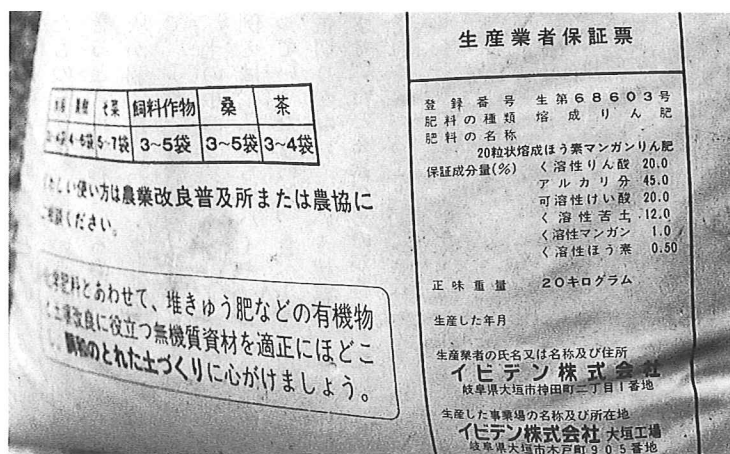 果樹 そ菜 飼料作物 桑 茶
4~6袋 5~7袋 3~5袋 3~5袋 3~4袋
しい使い方は農業改良普及所または農協に
ください。
肥料とあわせて、堆きゅう肥などの有機物
改良に役立つ無機質資材を適正にほどこ
調和のとれた土づくりに心がけましょう。
生産業者保証票
登録番号 生第68603号
肥料の種類 熔成りん肥
肥料の名称
20粒状熔成ほう素マンガンりん肥
保証成分量(%) く溶性りん酸 20.0
アルカリ分 45.0
可溶性けい酸 20.0
く溶性苦土 12.0
く溶性マンガン 1.0
く溶性ほう素 0.50
正味重量 20キログラム
生産した年月
生産業者の氏名又は名称及び住所
イビデン株式会社
岐阜県大垣市神田町二丁目1番地
生産した事業場の名称及び所在地
イビデン株式会社 大垣工場
岐阜県大垣市木戸町905番地